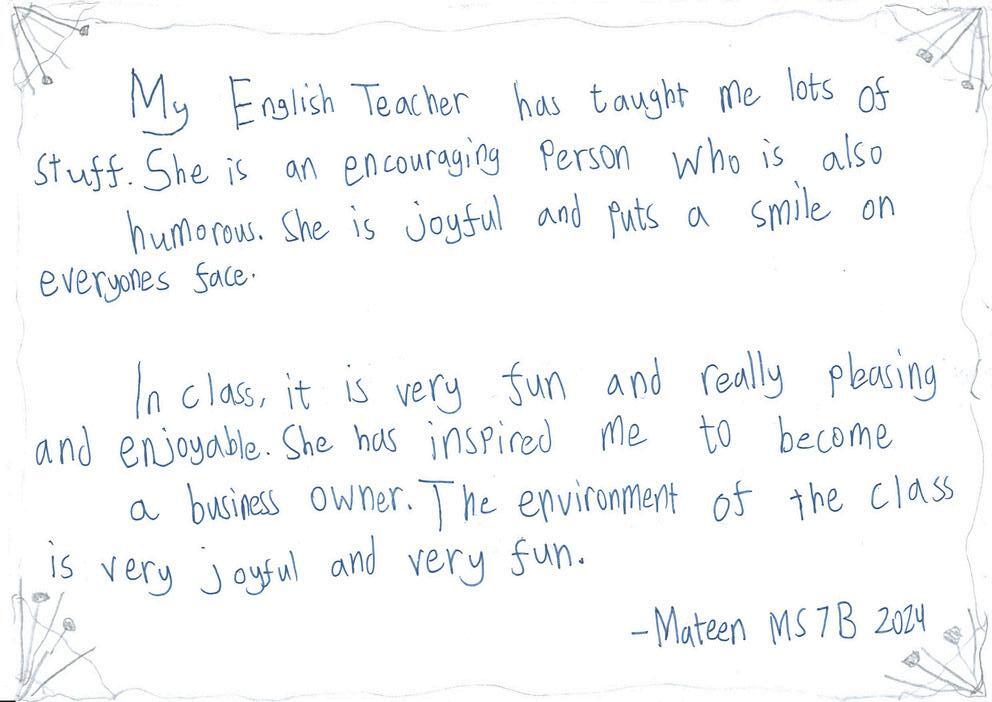 My English Teacher has taught me lots of
stuff. She is an encouraging Person who is also
humorous. She is joyful and puts a smile on
everyones face.
In class, it is very fun and really pleasing
and enjoyable. She has inspired me to become
a business owner. The environment of the class
is very joyful and very fun.
-Mateen MS7B 2024